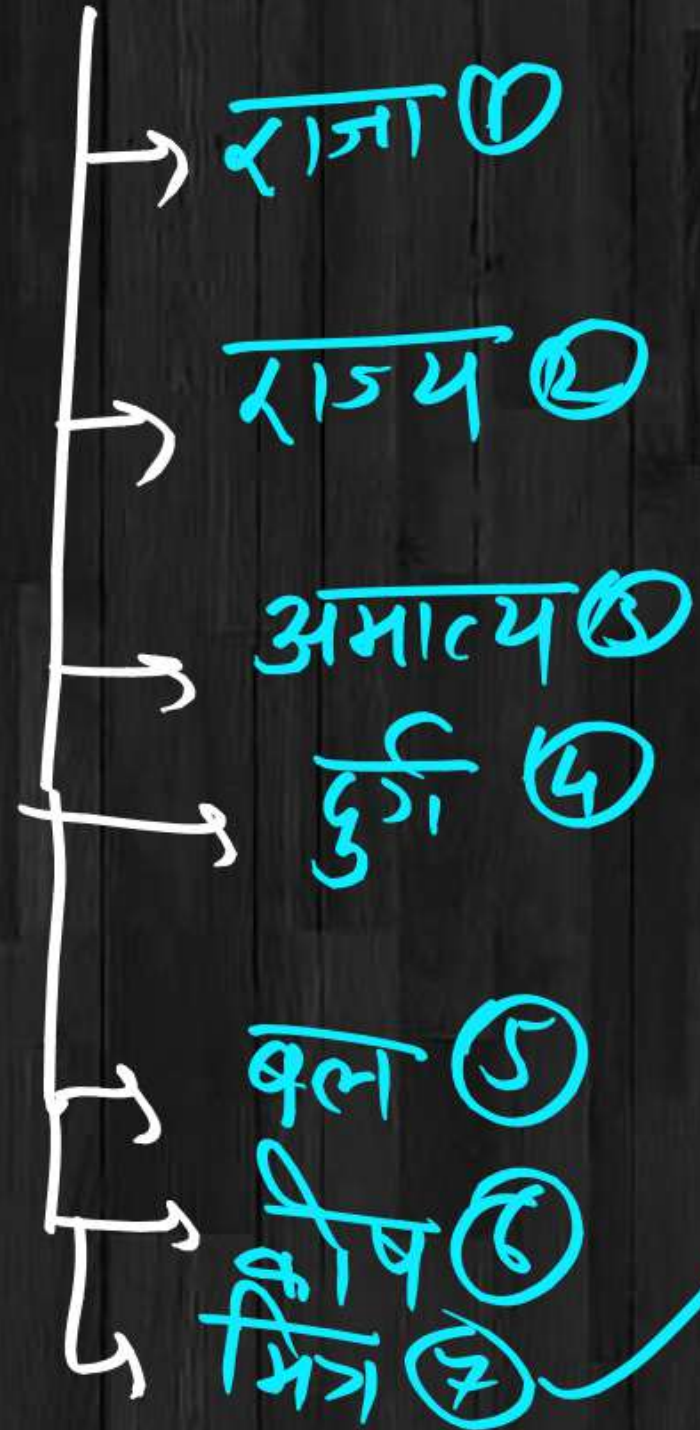 राजा 1
राज्य 2
अमात्य 3
दुर्ग 4
बल 5
कोष 6
मित्र 7